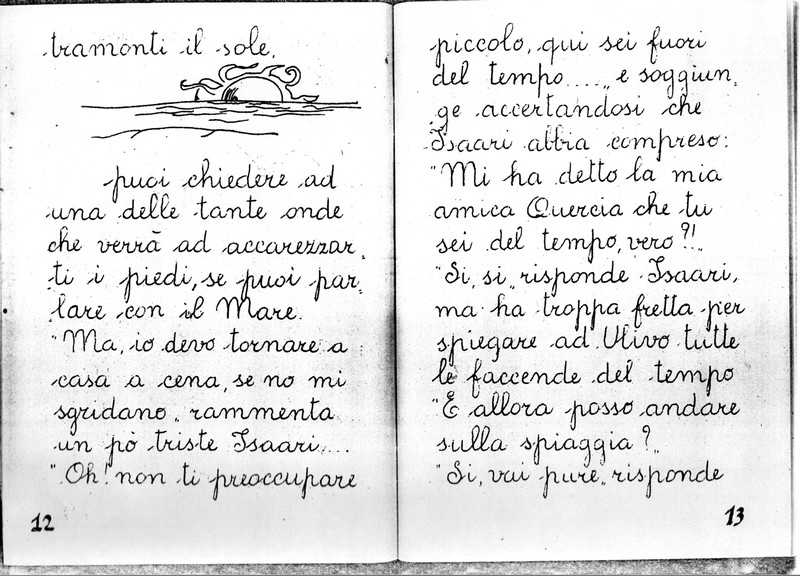 tramonti il sole.
puoi chiedere ad
una delle tante onde
che verrà ad accarezzar,
ti i piedi, se puoi par,
lare con il Mare.
"Ma, io devo tornare a
casa a cena, se no mi
sgridano„ rammenta
un pò triste Isaari....
"Oh! non ti preoccupare
12
piccolo, qui sei fuori
del tempo....„ e soggiun,
ge accertandosi che
Isaari abbia compreso:
"Mi ha detto la mia
amica Quercia che tu
sei del tempo, vero?!„
"Si, si„ risponde Isaari,
ma ha troppa fretta per
spiegare ad Ulivo tutte
le faccende del tempo
"E allora posso andare
sulla spiaggia?„
"Si, vai pure„ risponde
13